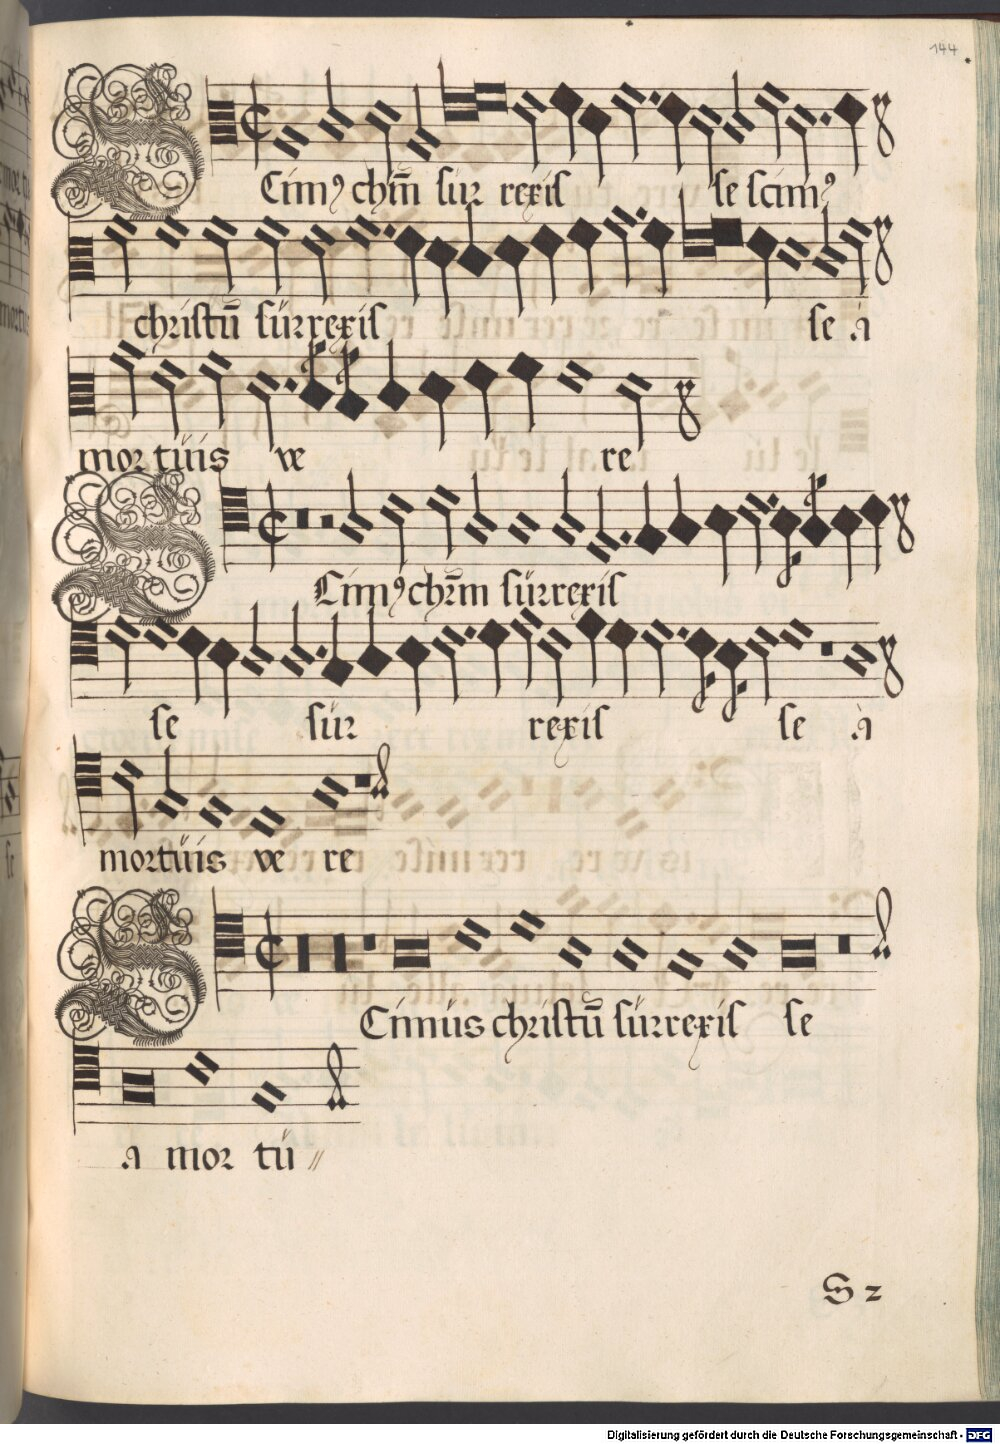 144
Scimꝯ chr̄m sur rexis se scimꝯ
christū surrexis se a
mor tuis ve re
Scimꝯ chr̄m surrexis
se sur rexis se a
mortuis ve re
Scimus christū surrexis se
a mor tu //
S 2
Digitalisierung gefördert durch die Deutsche Forschungsgemeinschaft - DFG